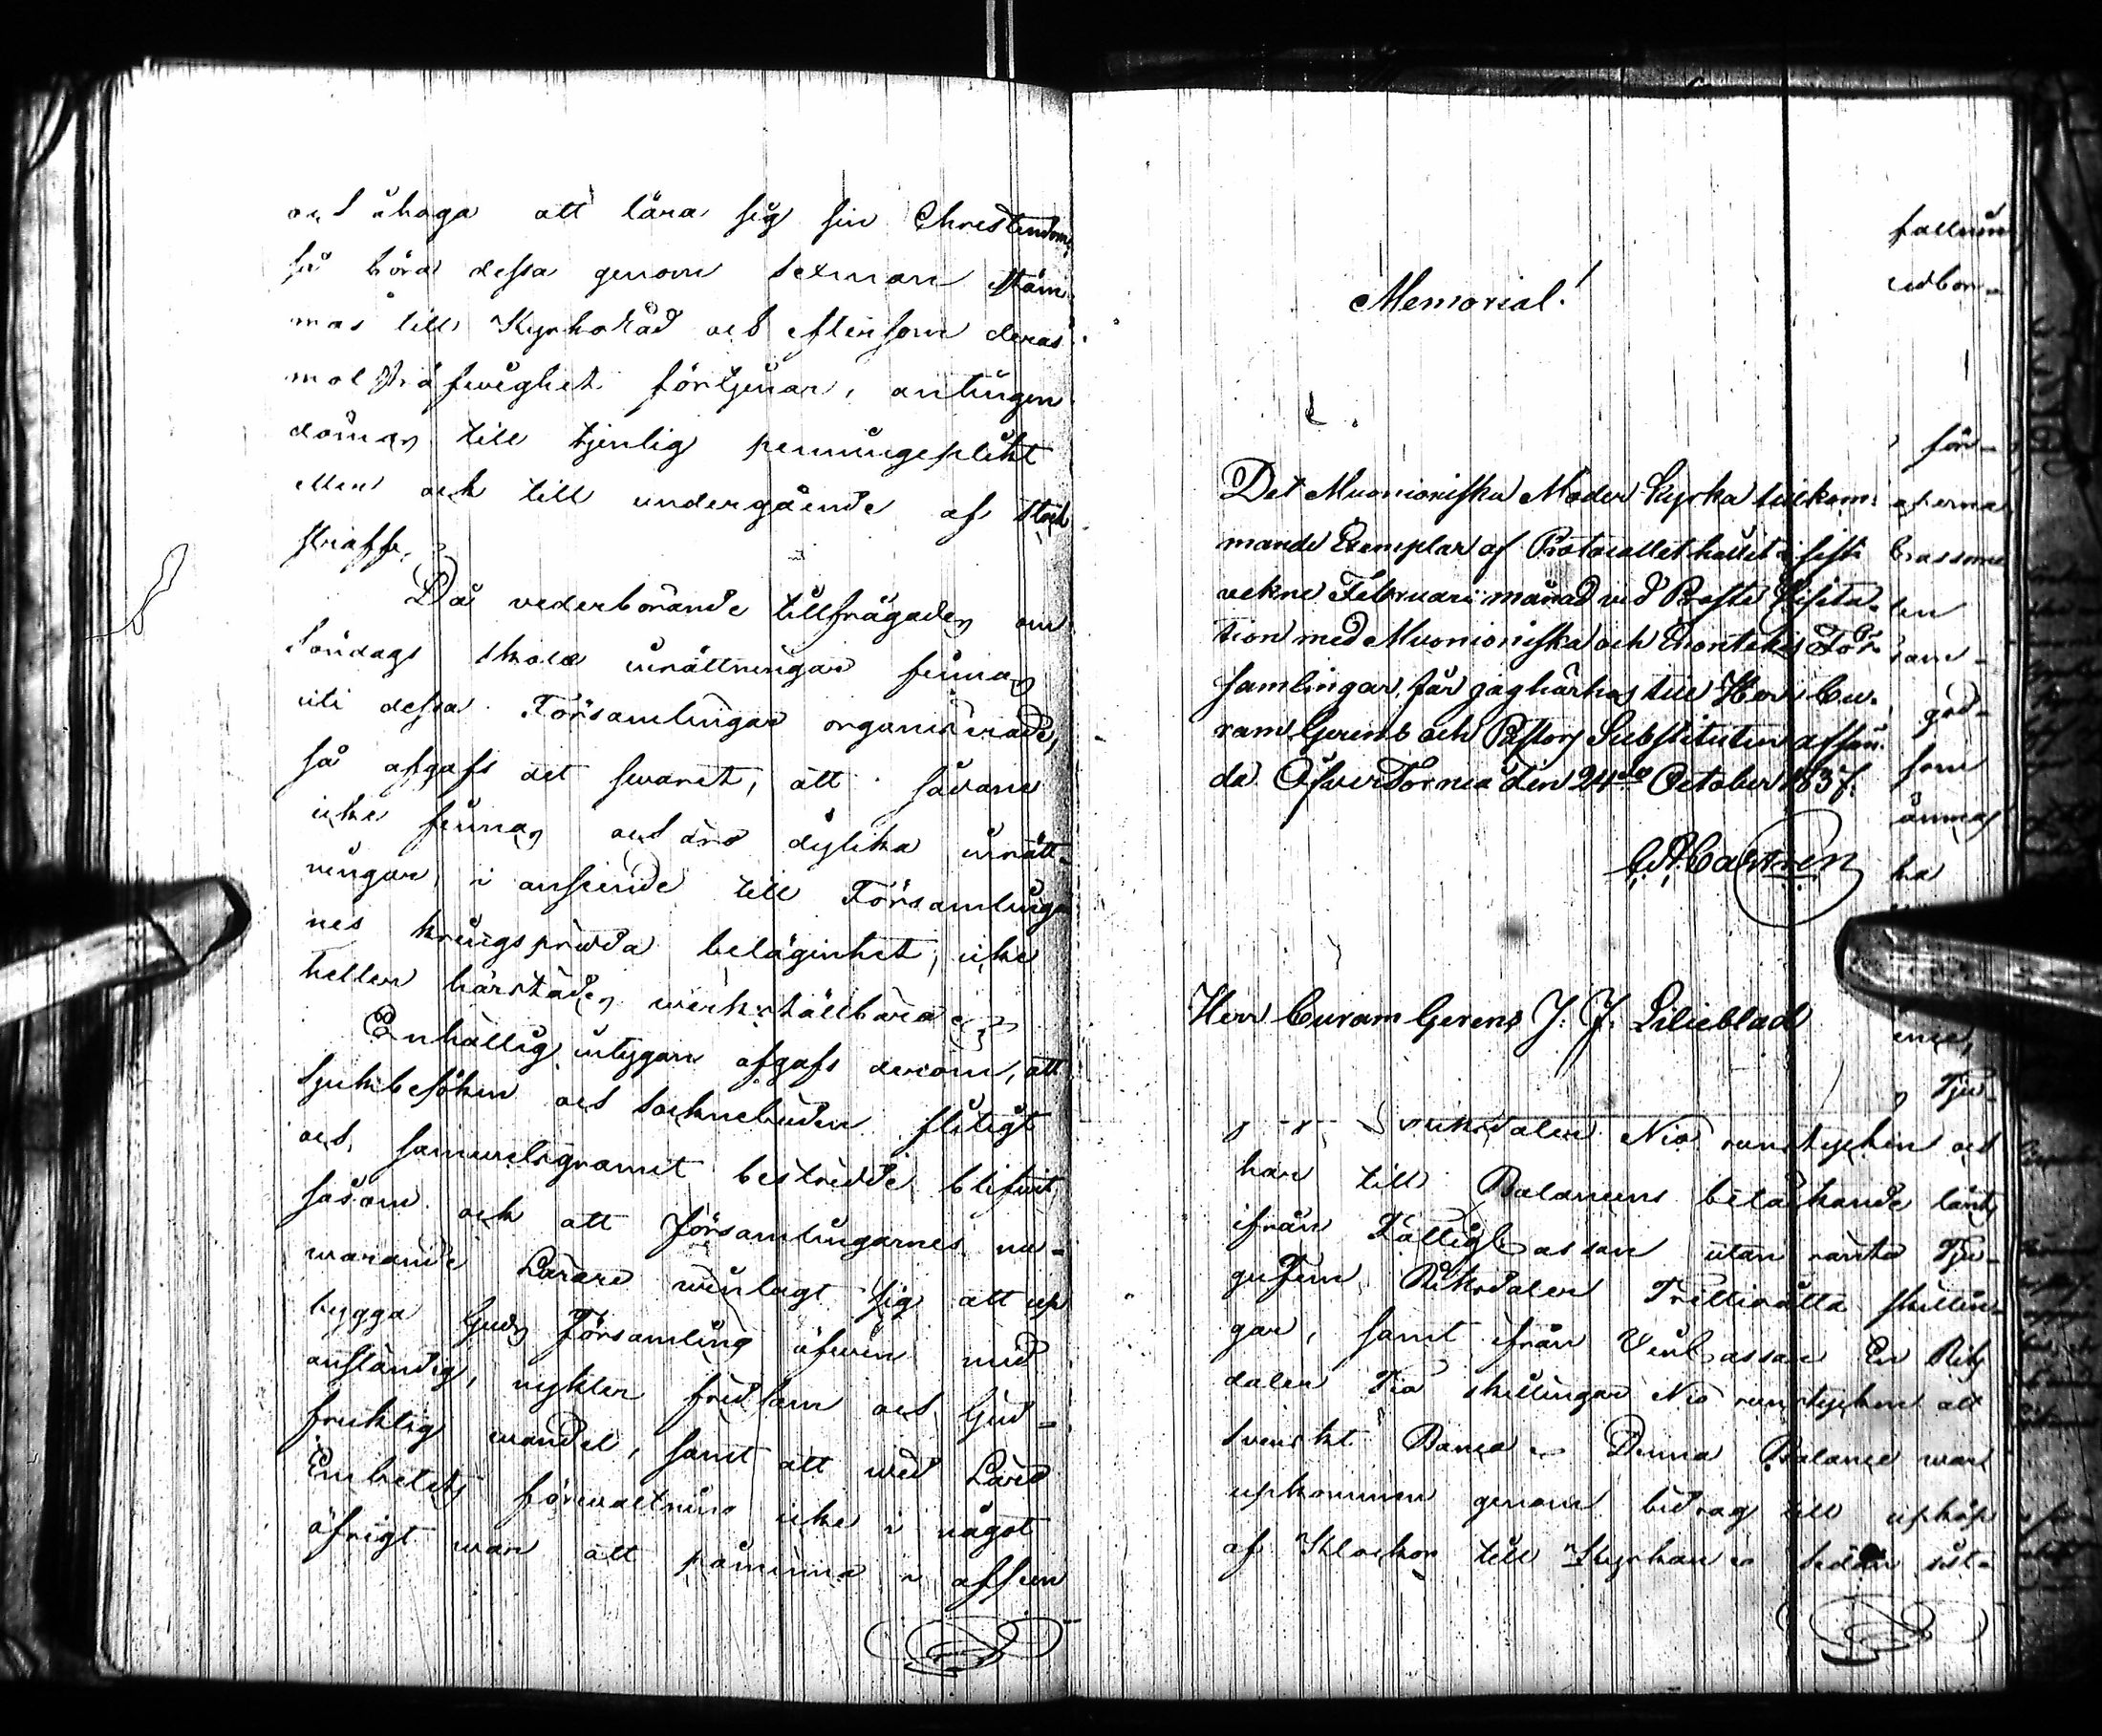 och åhoga att lära sig sin Christendom,
så böra dessa genom sexman stäm-
mas till Kyrkoråd och eftersom deras
motsträfwighet förtjenar, antingen
dömas till tjenlig penningeplikt
eller ock till undergående af stock
straffe.
Då vederbörande tillfrågades om
Söndags skole inrättningar finnas
uti dessa Församlingar organiserade,
så afgafs det swaret, att sådane
icke finnas och äro dylika inrätt-
ningar, i anseende till Församlingar
nes kringspridda belägenhet, icke
heller härstädes werkställbara
Enhällig intygan afgafs derom, att
sjukbesöken och sockne buden flitigt
och samwetsgrannt bestridde blifwit,
såsom ock att Församlingarnes nu-
warande Lärare winlagt sig att up
bygga Guds Församling äfwen med
anständig, nykter fridsam och Gud-
fruktig wandel, samt att wid Läro
Embetets förwaltning icke i något
öfrigt war att påminna i afseen
Memorial!
Det Muonioniska Moder Kyrka tillkom-
mande Exemplar af Protocollet hållet i sist
vekne Februari månad ved Prosta Visita-
tion med Muonioniska och Enontekis För-
samlingar, får jag härhos till Herr Cu-
ram Gerens och Pastors Substituten afsän-
da. Öfver Torneå den 24de October 1837.
Castren
Herr Curam Gerens J. J. Lilieblad
riksdaler Nio runstycken och
har till Balancens betäckande lånts
ifrån Fattig Cassan utan ränta Tju-
gu Fem Riksdaler Trettioåtta skillin-
gar, samt ifrån Vin Cassan En Riks
daler Tio skillingar Nio runstycken allt
Svenskt Banco. Denna Balance war
upkommen genom bidrag till upköp
af Klockor till Kyrkan sedan sist-
för-
som
ka
Tju-